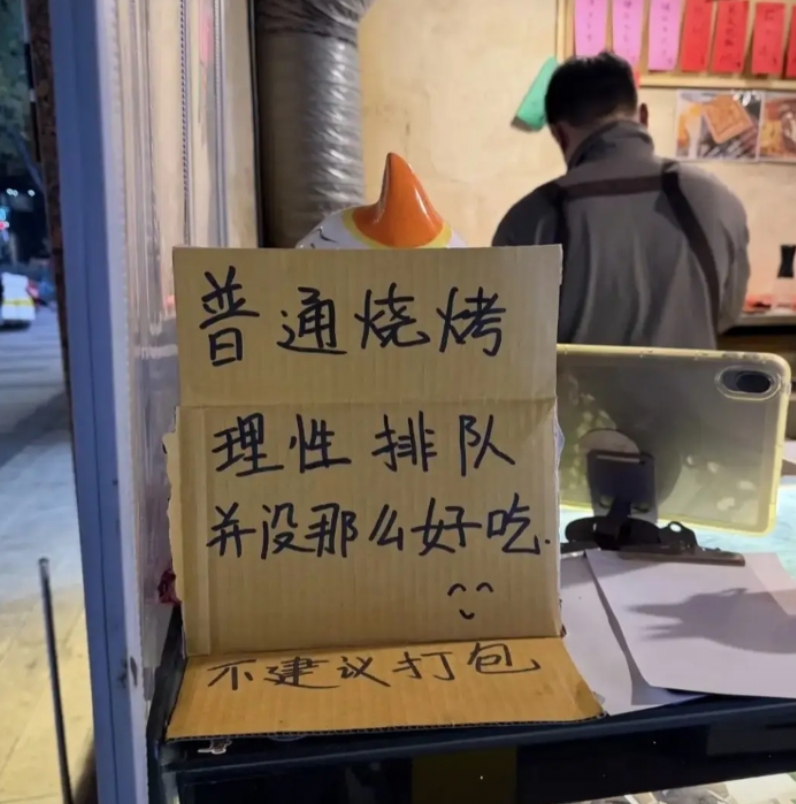 普通烧烤
理性排队
并没那么好吃.
不建议打包